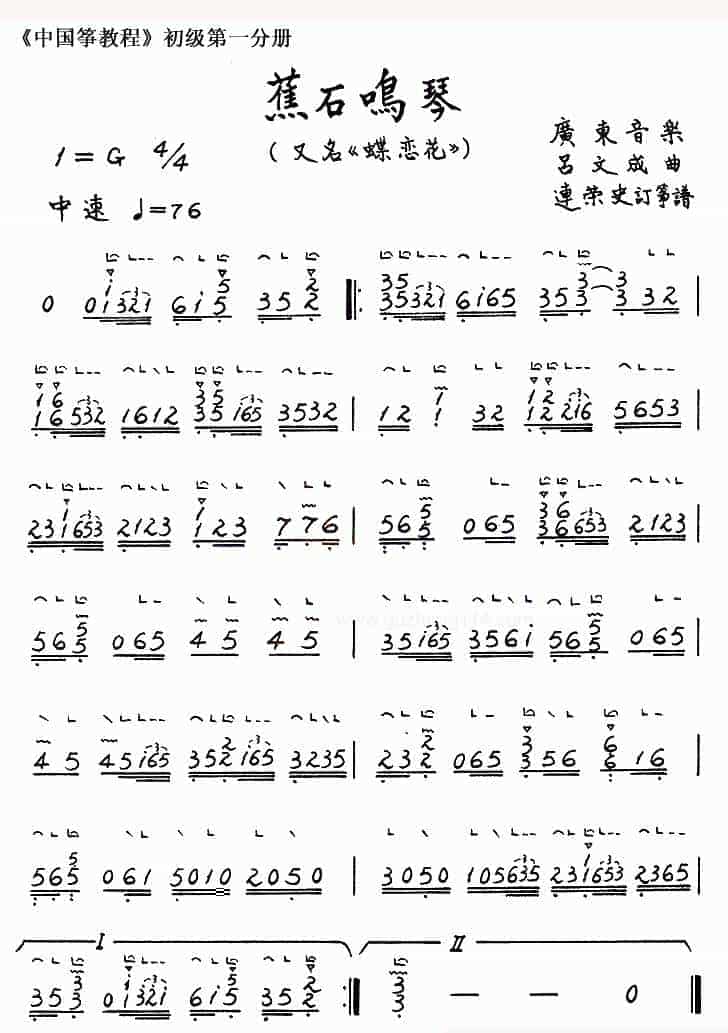 《中国筝教程》初级第一分册
蕉石鳴琴
(又名《蝶恋花》)
1=G 4/4
廣東音樂
呂文成曲
中速 ♩=76
連榮史訂筝譜
0 01321 615 352 35 35321 6165 353 3 32
16 16 532 1612 35 35 165 3532 12 1 32 12 12 216 5653
231653 2123 1 123 7 76 565 5 065 36 36 653 2123
565 5 065 45 45 35165 3561 565 5 065
45 45165 352165 3235 232 2 065 3 356 6 616
565 5 061 5010 2050 3050 105635 231653 2365
I II
353 3 01321 615 5 352 2 3 3 — — 0